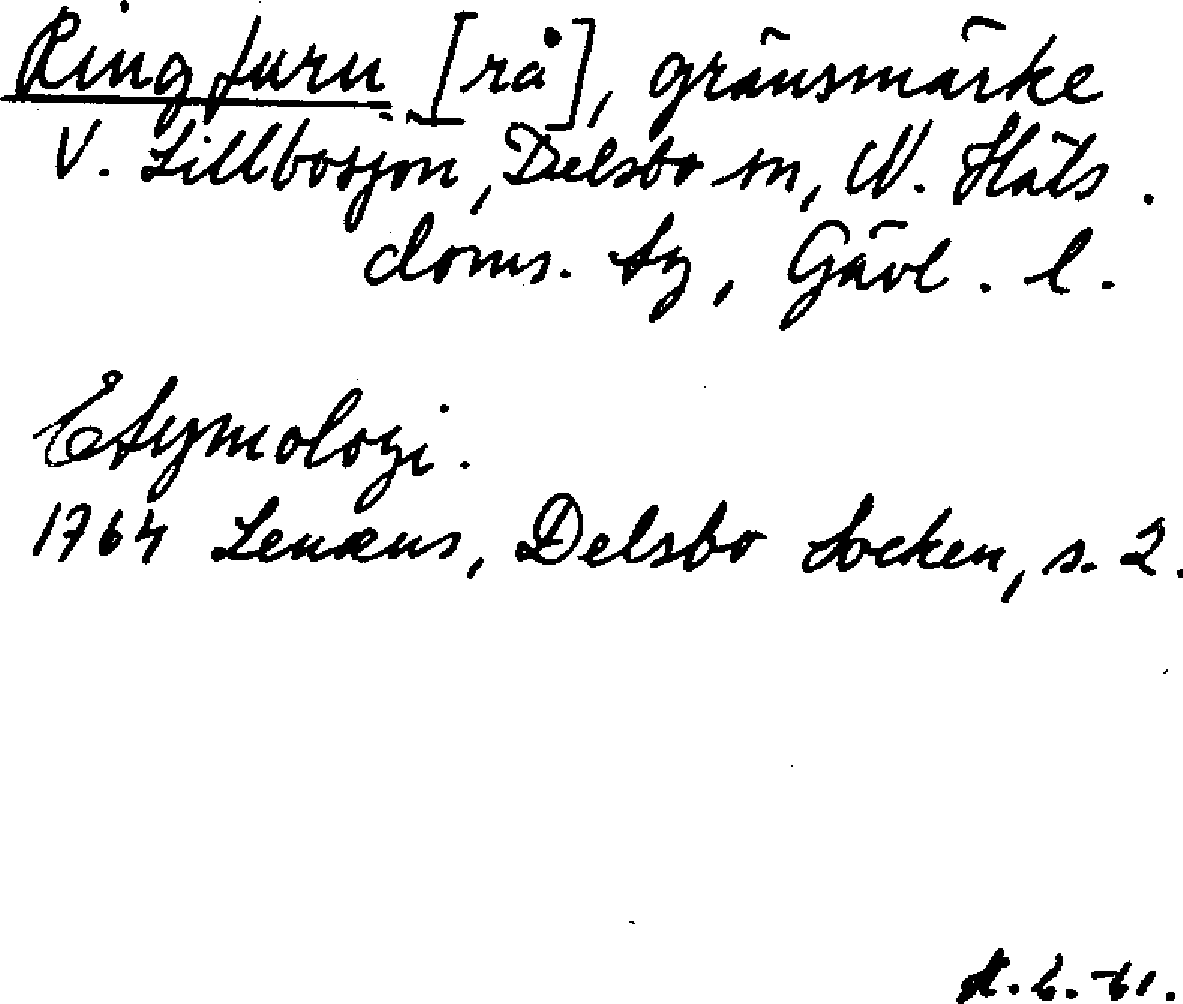 Ringfuru [rå], gränsmärke
V. Lillbosjön, Delsbo sn, N. Häls.
doms. tg, Gävl. l.
Etymologi.
1764 Lenæus, Delsbo Socken, s. 2.